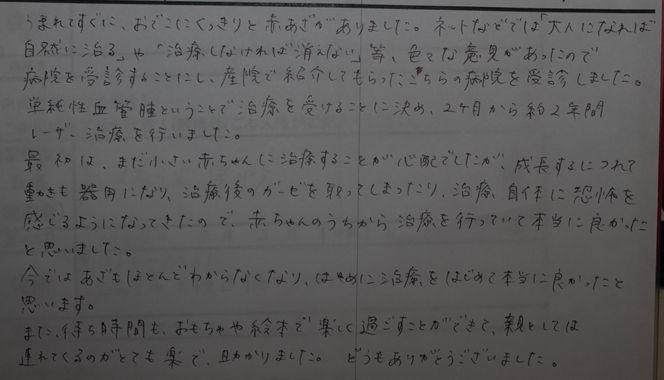 うまれてすぐに、おでこにくっきりと赤あざがありました。ネットなどでは「大人になれば
自然に治る」や「治療しなければ消えない」等、色々な意見があったので
病院を受診することにし、産院で紹介してもらったこちらの病院を受診しました。
単純性血管腫ということで治療を受けることに決め、2ヶ月から約2年間
レーザー治療を行いました。
最初は、まだ小さい赤ちゃんに治療することが心配でしたが、成長するにつれて
動きも器用になり、治療後のガーゼを取ってしまったり、治療自体に恐怖を
感じるようになってきたので、赤ちゃんのうちから治療を行っていて本当に良かった
と思いました。
今ではあざもほとんどわからなくなり、はやめに治療をはじめて本当に良かったと
思います。
また、待ち時間も、おもちゃや絵本で楽しく過ごすことができて、親としては
連れてくるのがとても楽で、助かりました。どうもありがとうございました。